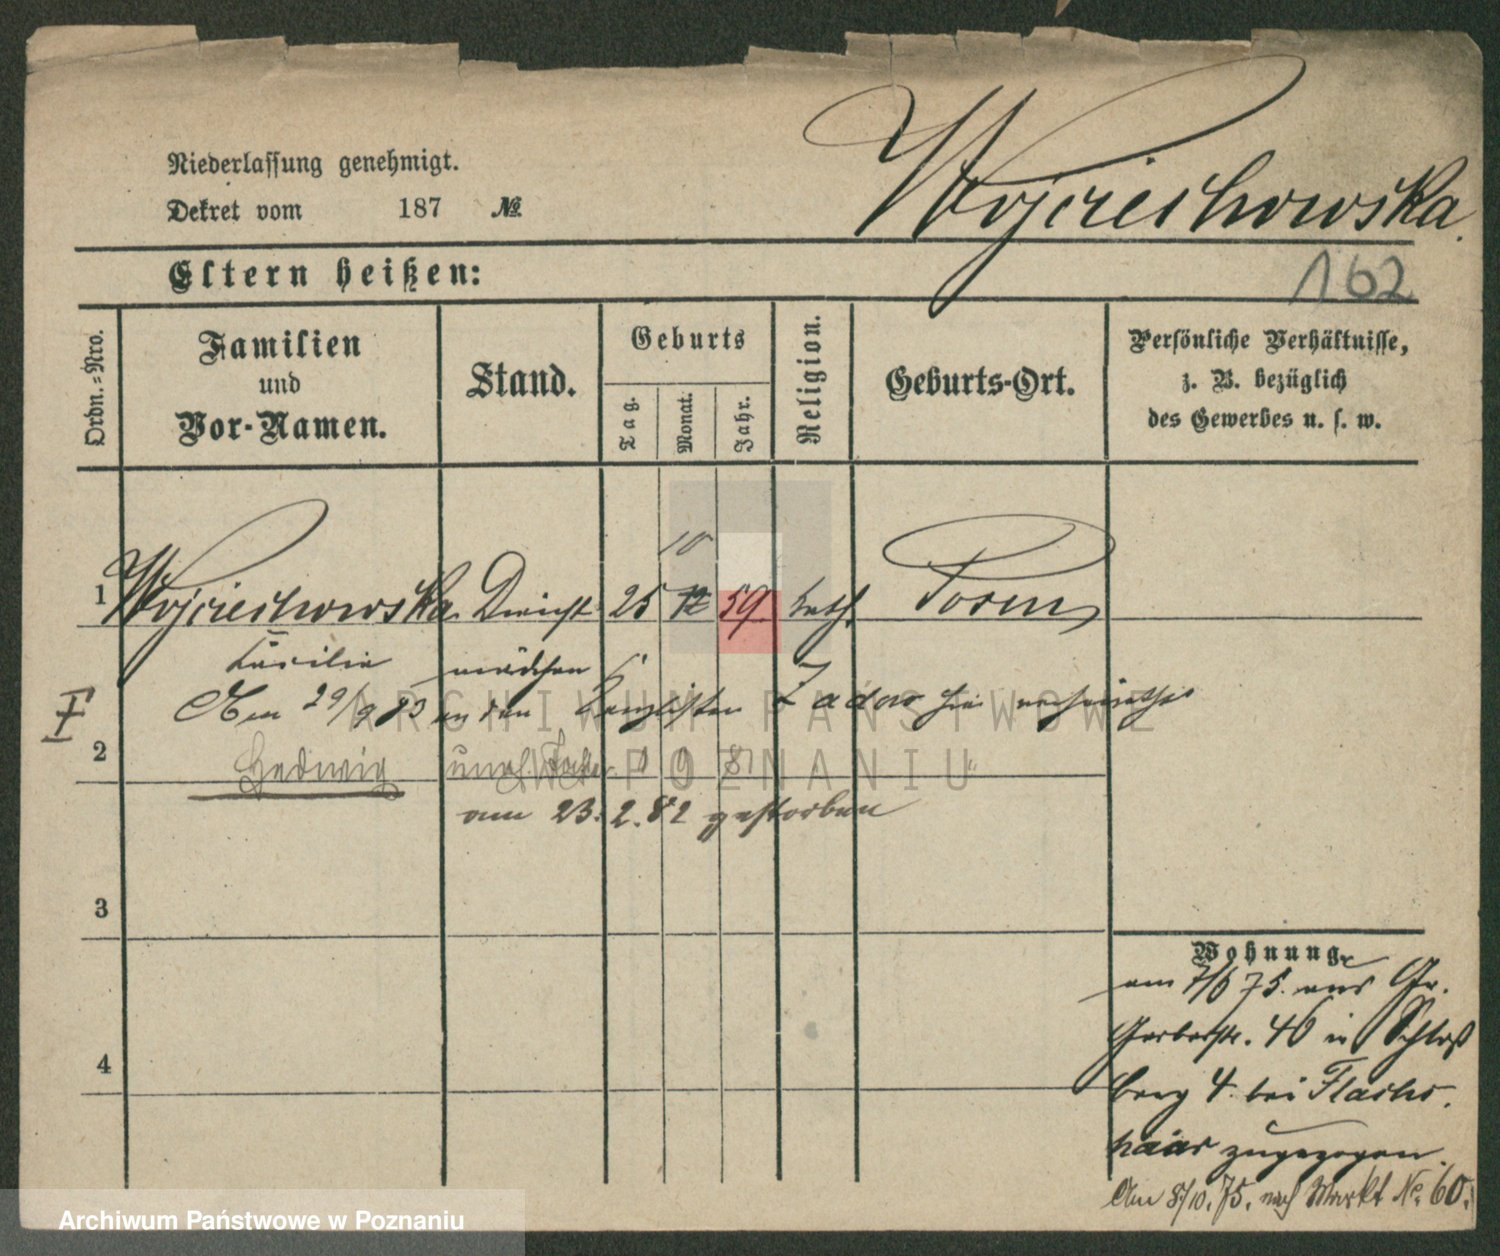 Wojciechowska.
Niederlassung genehmigt.
Dekret vom 187 №
162
Eltern heißen:
Ordn.=Nro.
Familien
und
Vor-Namen.
Stand.
Geburts
Tag.
Monat.
Jahr.
Religion.
Geburts-Ort.
Persönliche Verhältnisse,
z. B. bezüglich
des Gewerbes u. s. w.
10
1 Wojciechowska Dienst 25 12 59. kath. Posen
Cäcilie mädchen
Am 29/9 83 an den Kanzlisten hie verheirathet
2 Hedwig
am 23. 2. 82 gestorben
3
4
Wohnung.
am 7/6 75. aus Gr.
Gerberstr. 46 in Schloß
berg 4. bei Flachs
haar zugezogen.
Am 8/10. 75. nach Markt No. 60.
ARCHIWUM PAŃSTWOWE
W POZNANIU
Archiwum Państwowe w Poznaniu